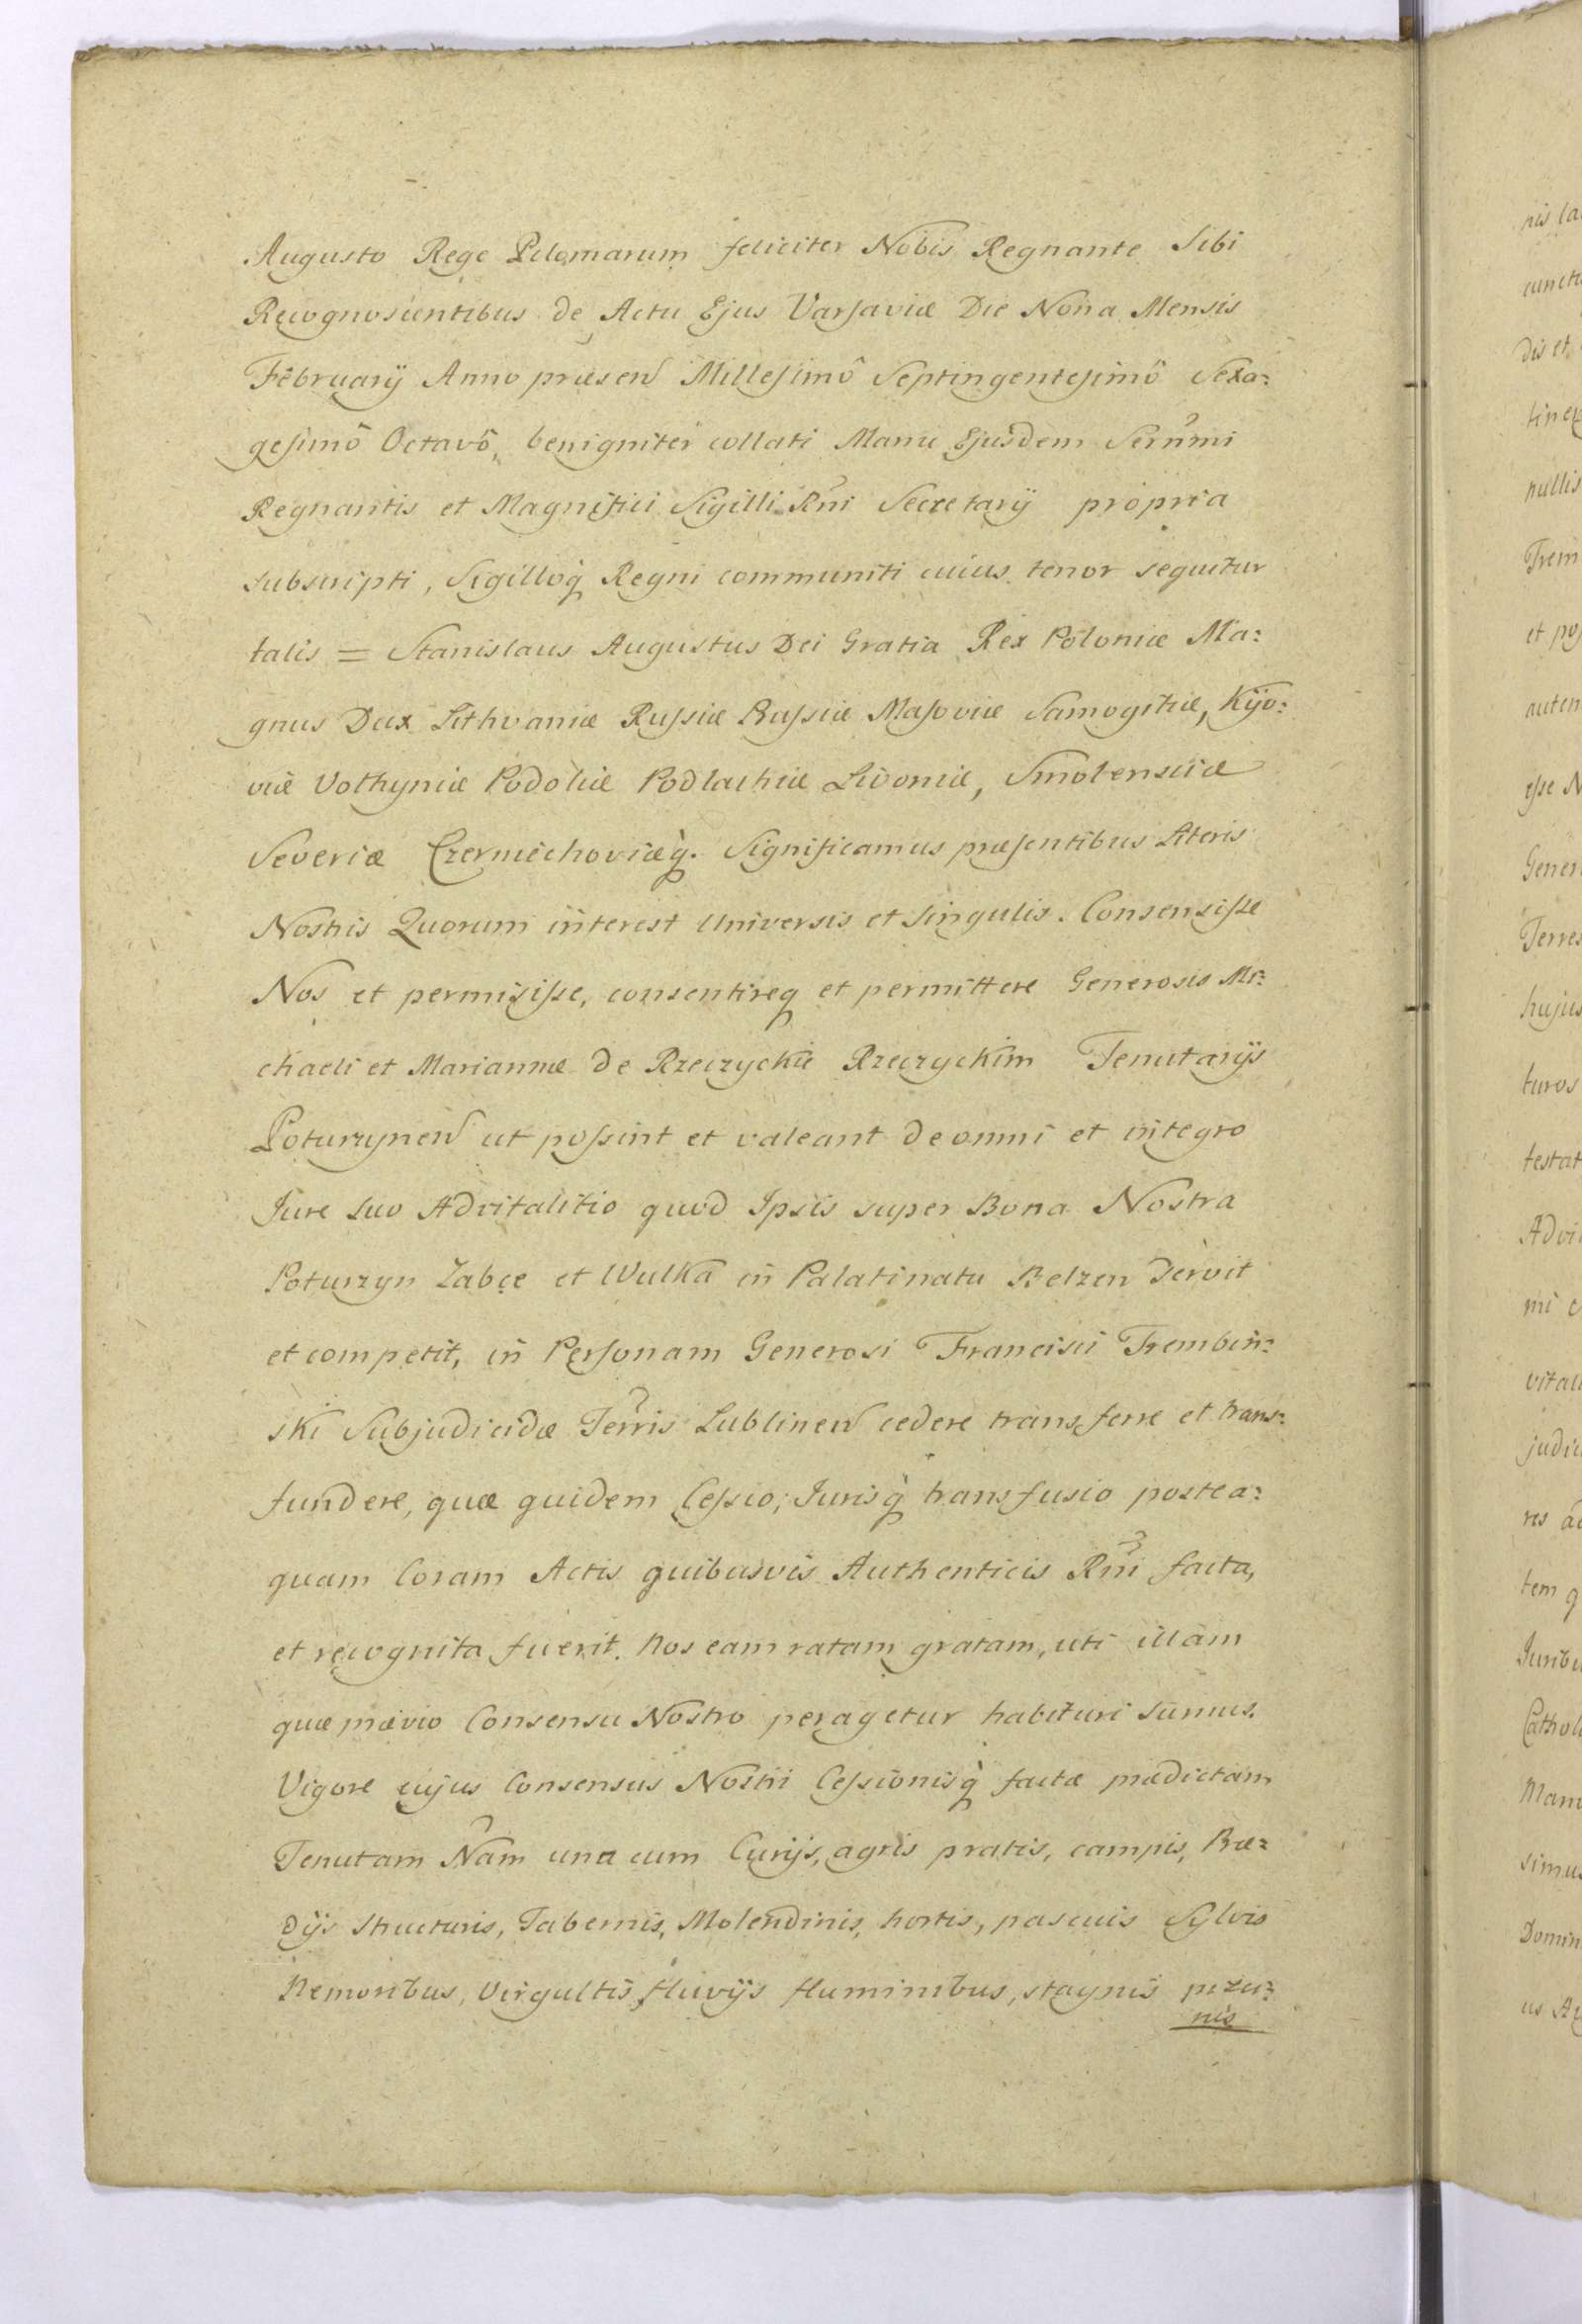 Augusto Rege Polonarum feliciter Nobis Regnante Sibi
Recognoscentibus de Actu Ejus Varsaviæ Die Nona Mensis
Februarij Anno præsen Millesimô Septingentesimô Sexa:
gesimô Octavô, benigniter collati Manu Ejusdem Sernmi
Regnantis et Magnifici Sigilli Rni Secretarij propria
subscripti, Sigilloq Regni communiti cuius tenor sequitur
talis = Stanislaus Augustus Dei Gratia Rex Poloniæ Ma:
gnus Dux Lithvaniæ Russiæ Prussiæ Masoviæ Samogitiæ, Kijo:
viæ Volhyniæ Podoliæ Podlachiæ Livoniæ, Smolensciæ
Severiæ Czerniechoviæq. Significamus præsentibus Literis
Nostris Quorum interest Universis et Singulis. Consensisse
Nos et permisisse, consentireq et permittere Generosis Mi:
chaeli et Mariannæ de Rzeczyckie Rzeczyckim Tenutarijs
Poturzynen ut possint et valeant de omni et integro
Jure suo Advitalitio quod Ipsis super Bona Nostra
Poturzyn Zabcze et Wulka in Palatinatu Belzen servit
et competit, in Personam Generosi Francisci Trembin:
ski Subjudicidæ Terris Lublinen cedere transferre et trans:
fundere, quæ quidem Cessio, Jurisq transfusio postea:
quam Coram Actis quibusvis Authenticis Rni facta,
et recognita fuerit. Nos eam ratam gratam, uti illam
quæ prævio Consensu Nostro peragetur habituri sumus.
Vigore cujus Consensus Nostri Cessionisq factæ prædictam
Tenutam Nam una cum Curijs, agris pratis, campis, Præ:
dijs structuris, Tabernis, Molendinis, hortis, pascuis Sylvis
Nemoribus, Virgultis, fluvijs fluminibus, stagnis pisci:
nis